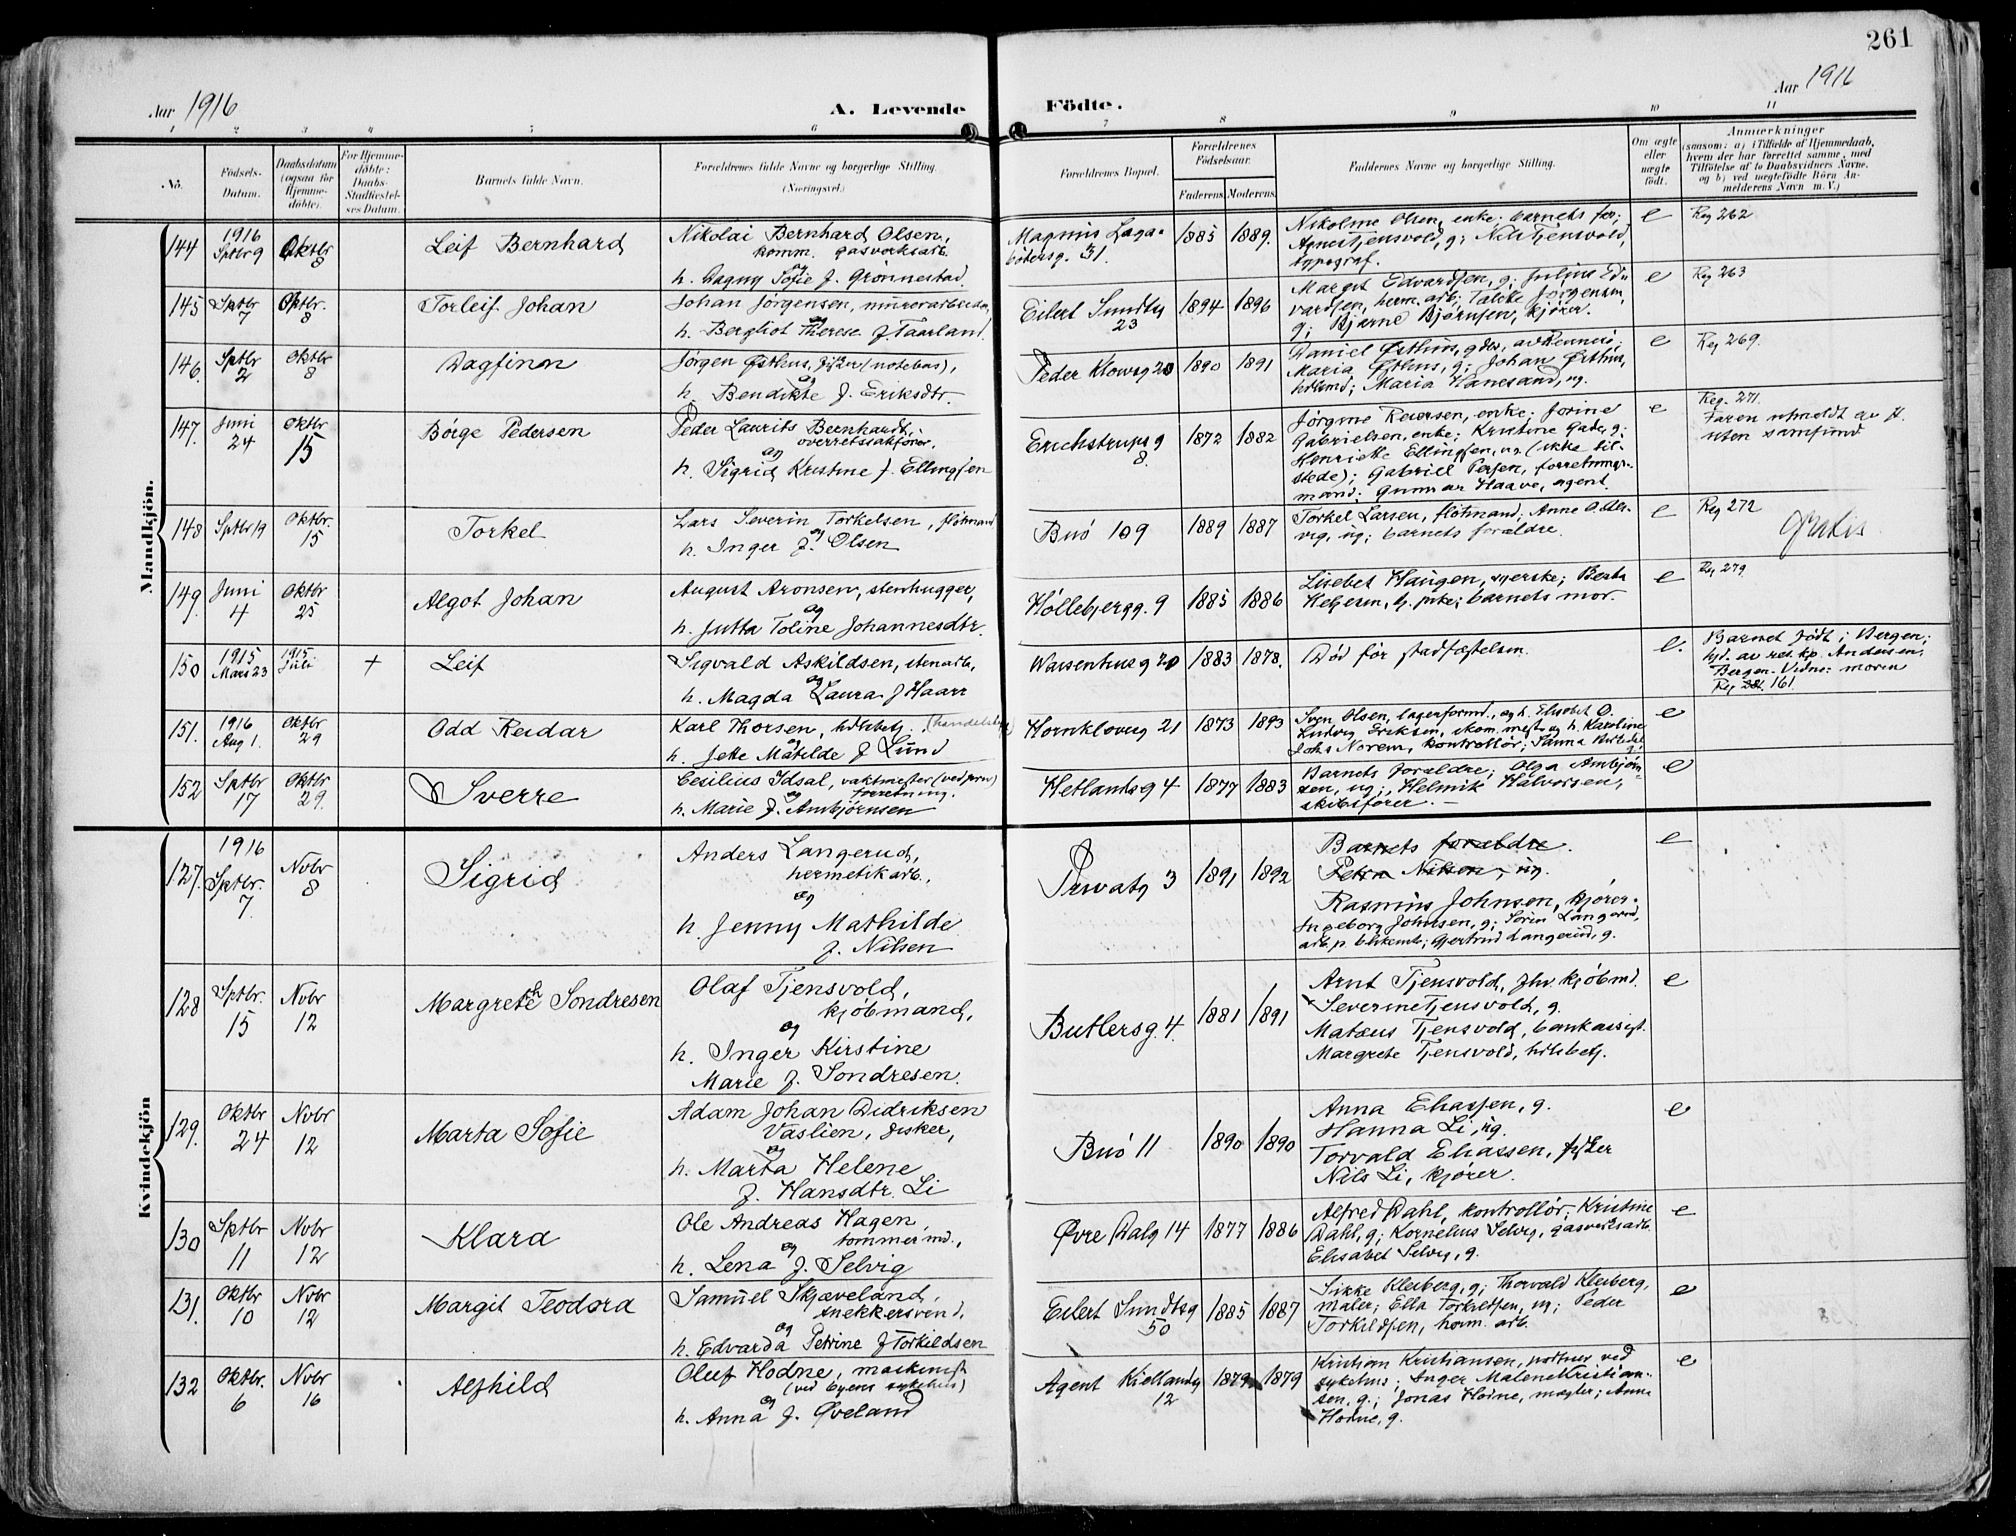 261
Aar 1916
A. Levende
Födte.
Aar 1916
1 2 3 4 5 6 7 8 9 10 11
No.
Födsels-
Datum.
Daabsdatum
(ogsaa for
Hjemme-
döbte).
For Hjemme-
döbte:
Daabs-
Stadfæstel-
ses Datum.
Barnets fulde Navn.
Forældrenes fulde Navne og borgerlige Stilling.
(Næringsvei.)
Forældrenes Bopæl.
Forældrenes
Födselsaar.
Faderens. Moderens.
Faddernes Navne og borgerlige Stilling.
Om ægte
eller
uægte
födt.
Anmærkninger
(saasom: a) i Tilfælde af Hjemmedaab,
hvem der har forrettet samme, med
Tilföielse af to Daabsvidners Navne.
og b) ved uægtefödte Börn An-
melderens Navn m. V.)
Mandkjön.
144 1916 Sptbr 9 Oktbr 8 Leif Bernhard
Nikolai Bernhard Olsen,
komm. gasverksarb.
og
h. Dagny Sofie f. Grönnestad
Magnus Laga-
bötersg. 31.
1885 1889.
Nikoline Olsen, enke; barnets far;
Agnes Tjensvold, g; Nils Tjensvold,
typograf.
e Reg 262
145 Sptbr 7 Oktbr. 8 Torleif Johan
Johan Jörgensen, murerarbeider,
og
h. Bergliot Therese f. Taarland.
Eilert Sundtsg
23
1894 1896
Margit Edvardsen, g; Julius Ed-
vardsen, herm. arb;
g; Bjarne Björnsen, kjörer.
e Reg 263
146. Sptbr 2 Oktbr 8 Dagfinn
Jörgen Østhus, fisker (notebas),
og
h. Bendikte f. Eriksdtr.
Peder Klowsg 20 1890 1891
Daniel Østhus, gdbr, av Rennesö;
Maria Østhus, g; Johan Østhus,
Maria Hanesand, ug.
e Reg 269.
147. Juni 24 Oktbr 15 Börge Pedersen
Peder Laurits Bernhardt,
overretssakförer,
og
h. Sigrid Kristine f. Ellingsen
Erichstrupsg
8.
1872 1882
Jörgine Reiersen, enke; Jorine
Gabrielsen, enke; Kristine Gade, g;
Henriette Ellingsen, ug (ikke til-
stede); Gabriel Persen, forretnings-
mand; Gunnar Haave, agent.
e
Reg. 271.
Faren utmeldt av st.
uten samfund
148 Sptbr 19 Oktbr. 15 Torkel
Lars Severin Torkelsen, flötmand
og
h. Inger f. Olsen
Buö 109 1889 1887
Torkel Larsen, flötmand; Anne
ug; barnets forældre.
e Reg 272
Gratis
149. Juni 4 Oktbr 25 Algot Johan
August Aronsen, stenhugger,
og
h. Jutta Toline Johannesdtr.
Høllebjergg. 9 1885 1886
Lisebet Haugen, syerske; Berta
barnets mor.
e Reg 279
150 1915 Mars 23 1915 Juli + Leif
Sigvald Askildsen, stenarb,
og
h. Magda Laura f Haarr
Waisenhusg 20 1883 1878.
Död för stadfæstelsen.
e.
Barnet födt i Bergen;
hjd. av res. kp. Andersen,
Bergen. Vidne: moren
Reg 161.
151. 1916 Aug 1. Oktbr 29 Odd Reidar
Karl Thorsen, hdlsbetj.
og
h. Jette Matilde f Lund
Hornklovesg 21 1873 1893
Sven Olsen, lagerformd., og h. Elisabet O.
Ludvig Eriksen, skom. mester og h. Karoline
Johs Norem, kontrollör;
e
152 Sptbr 17 Oktbr 29. Sverre
Cesilius Idsal, vaktmester (ved
forretning.
og
h. Marie f. Ambjörnsen
Hetlandsg 4 1877 1883
Barnets forældre; Olga Ambjörn-
sen, ug; Helmik Halvorsen,
skibsförer. —
e
Kvindekjön
127. 1916 Sptbr. 7 Novbr 8 Sigrid
Anders Langerud,
hermetikarb.,
og
h. Jenny Mathilde
f. Nilsen
Privatg 3 1891 1892
Barnets forældre.
Petra Nilsen, ug.
Rasmus Johnsen, kjörer.
Ingeborg Johnsen, g; Sören Langerud,
arb. p. blikemb; Gjertrud Langerud, g.
e
128 Sptbr. 15 Novbr 12 Margrethe Sondresen
Olaf Tjensvold,
kjöbmand,
og
h. Inger Kirstine
Marie f. Sondresen.
Butlersg. 4. 1881 1891
Arnt Tjensvold, fhv. kjöbmd.
Severine Tjensvold, g.
Mataus Tjensvold, bankassist.
Margrete Tjensvold, hdlsbetj.
e
129. Oktbr 24 Novbr 12 Marta Sofie
Adam Johan Didriksen
Vaslien, fisker,
og
h. Marta Helene
f. Hansdtr. Li
Buö 11 1890 1890
Anna Eliassen, g.
Hanna Li, ug.
Torvald Eliassen, fisker
Nils Li, kjörer.
e
130 Sptbr 11 Novbr 12 Klara
Ole Andreas Hagen,
tömmermd.,
og
h. Lena f. Selvig
Øvre Dalg 14 1877 1886
Alfred Dahl, kontrollör; Kristine
Dahl, g; Kornelius Selvig, gasverksarb.
Elisabet Selvig, g.
e
131. Oktbr 10 Novbr 12 Margit Teodora
Samuel Skjæveland,
snekkersvend,
og
h. Edvarda Petrine f Torkildsen
Eilert Sundtsg
50
1885 1887
Sikke Kleiberg, g; Thorvald Kleiberg,
maler; Ella Torkildsen, ug; Peder
Torkildsen, herm. arb.
e
132 Oktbr. 6 Novbr 16 Alfhild
Oluf Hodne, maskinist
(ved byens sykehus)
og
h. Anna f. Øveland
Agent Kiellandsg
12
1879 1879
Kristian Kristiansen, portner ved
sykehus; Inger Malene Kristian-
sen, g.; Jonas Hodne, mægler; Anna
Hodne, g.
e